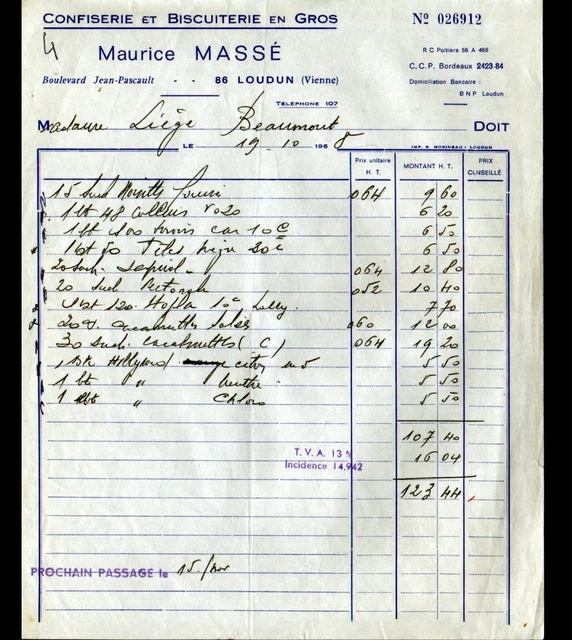 CONFISERIE ET BISCUITERIE EN GROS
Nº 026912
4
Maurice MASSÉ
R C Poitiers 59 A 468
C. C. P. Bordeaux 2423-84
Boulevard Jean-Pascault - - 86 LOUDUN (Vienne)
Domiciliation Bancaire :
BNP Loudun
TÉLÉPHONE 107
Madame Liège Beaumont DOIT
LE 19-10 1968
IMP. R. ROBINEAU - LOUDUN
Prix unitaire H. T. MONTANT H. T. PRIX CONSEILLÉ
15 064 9 60
1 bt 48 6 20
1 bt 100 car 10c 6 50
1 bt 50 Têtes 20c 6 50
20 sach. 064 12 80
20 sach 052 10 40
1 bt 120 Hopla 10c 7 70
20 cacahuettes salées 060 12 00
30 sach. cacahuettes (C) 064 19 20
1 bt Hollywood 5 50
1 bt " menthe 5 50
1 bt " Chloro 5 50
107 40
T. V. A. 13 %
Incidence 14,942
16 04
123 44
PROCHAIN PASSAGE le 15/nov